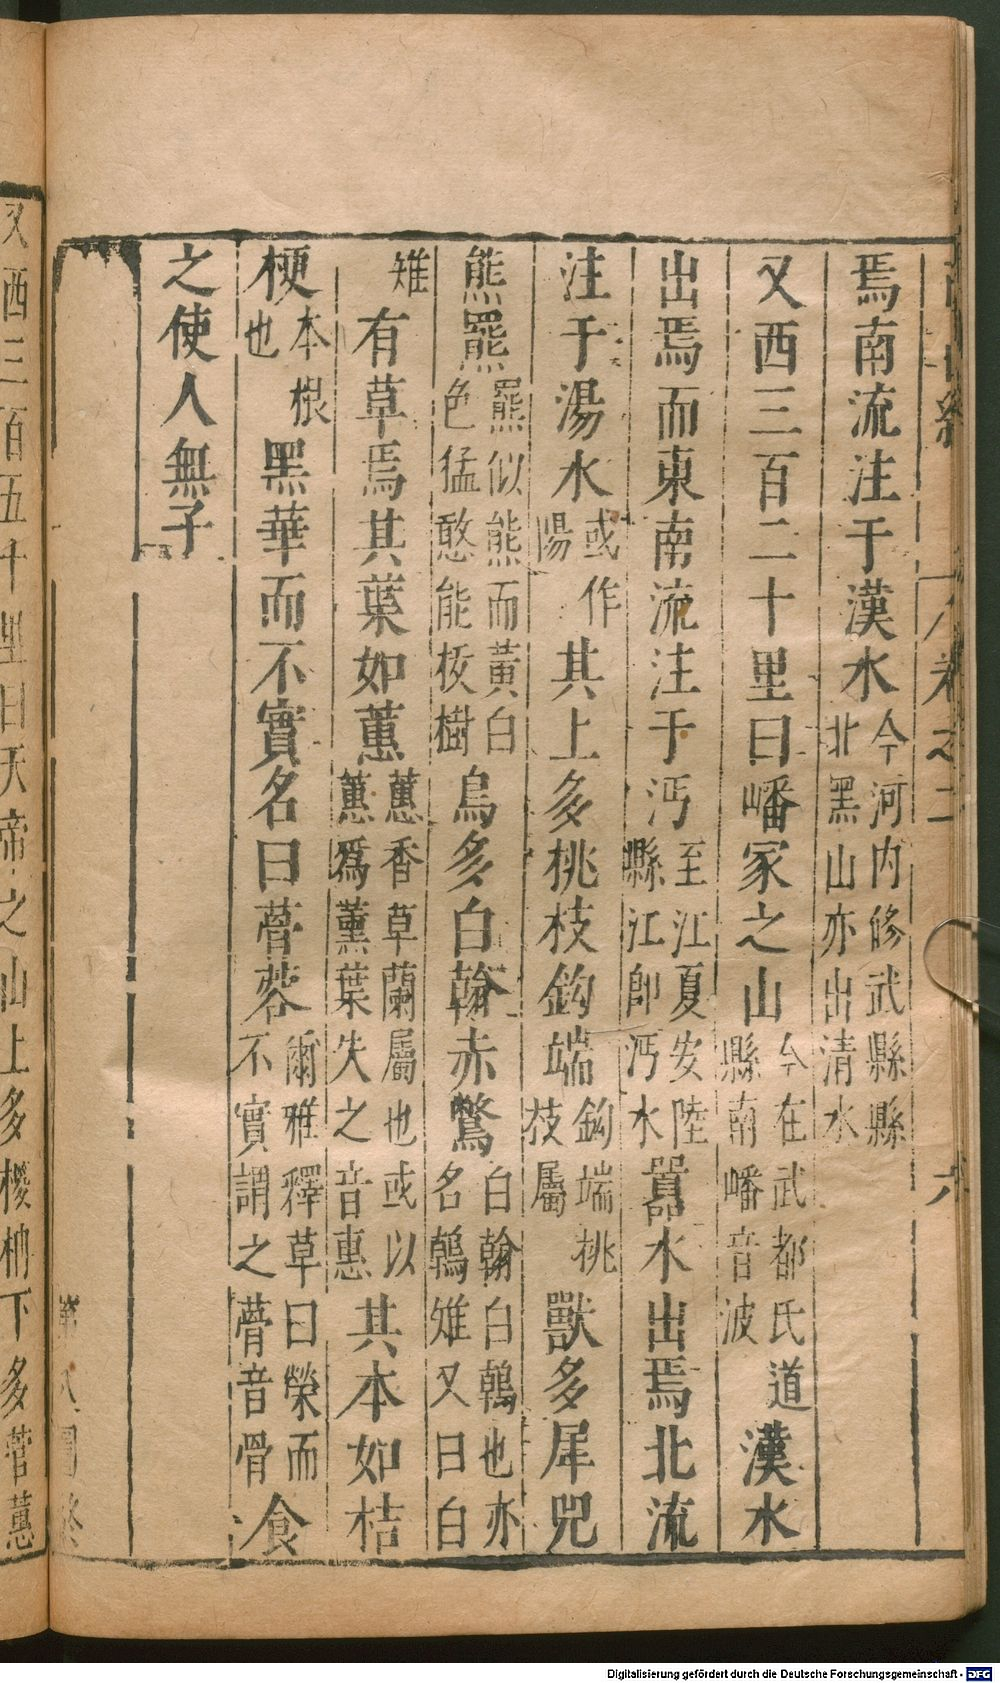 焉南流注于漢水今河内修武縣縣北黑山亦出清水
又西三百二十里曰嶓冢之山今在武都氐道縣南嶓音波漢水
出焉而東南流注于沔至江夏安陸縣江卽沔水嚻水出焉北流
注于湯水或作陽其上多桃枝鈎端鈎端桃枝屬獸多犀兕
熊羆羆似熊而黃白色猛憨能㧞樹鳥多白翰赤鷩白翰白鶾也亦名鶾雉又曰白
雉有草焉其葉如蕙蕙香草蘭屬也或以蕙爲薰葉失之音惠其本如桔
梗本根也黑華而不實名曰蓇蓉爾雅釋草曰榮而不實謂之蓇音骨食
之使人無子
又西三百五十里曰天帝之山上多㯶枏下多菅蕙
Digitalisierung gefördert durch die Deutsche Forschungsgemeinschaft - DFG